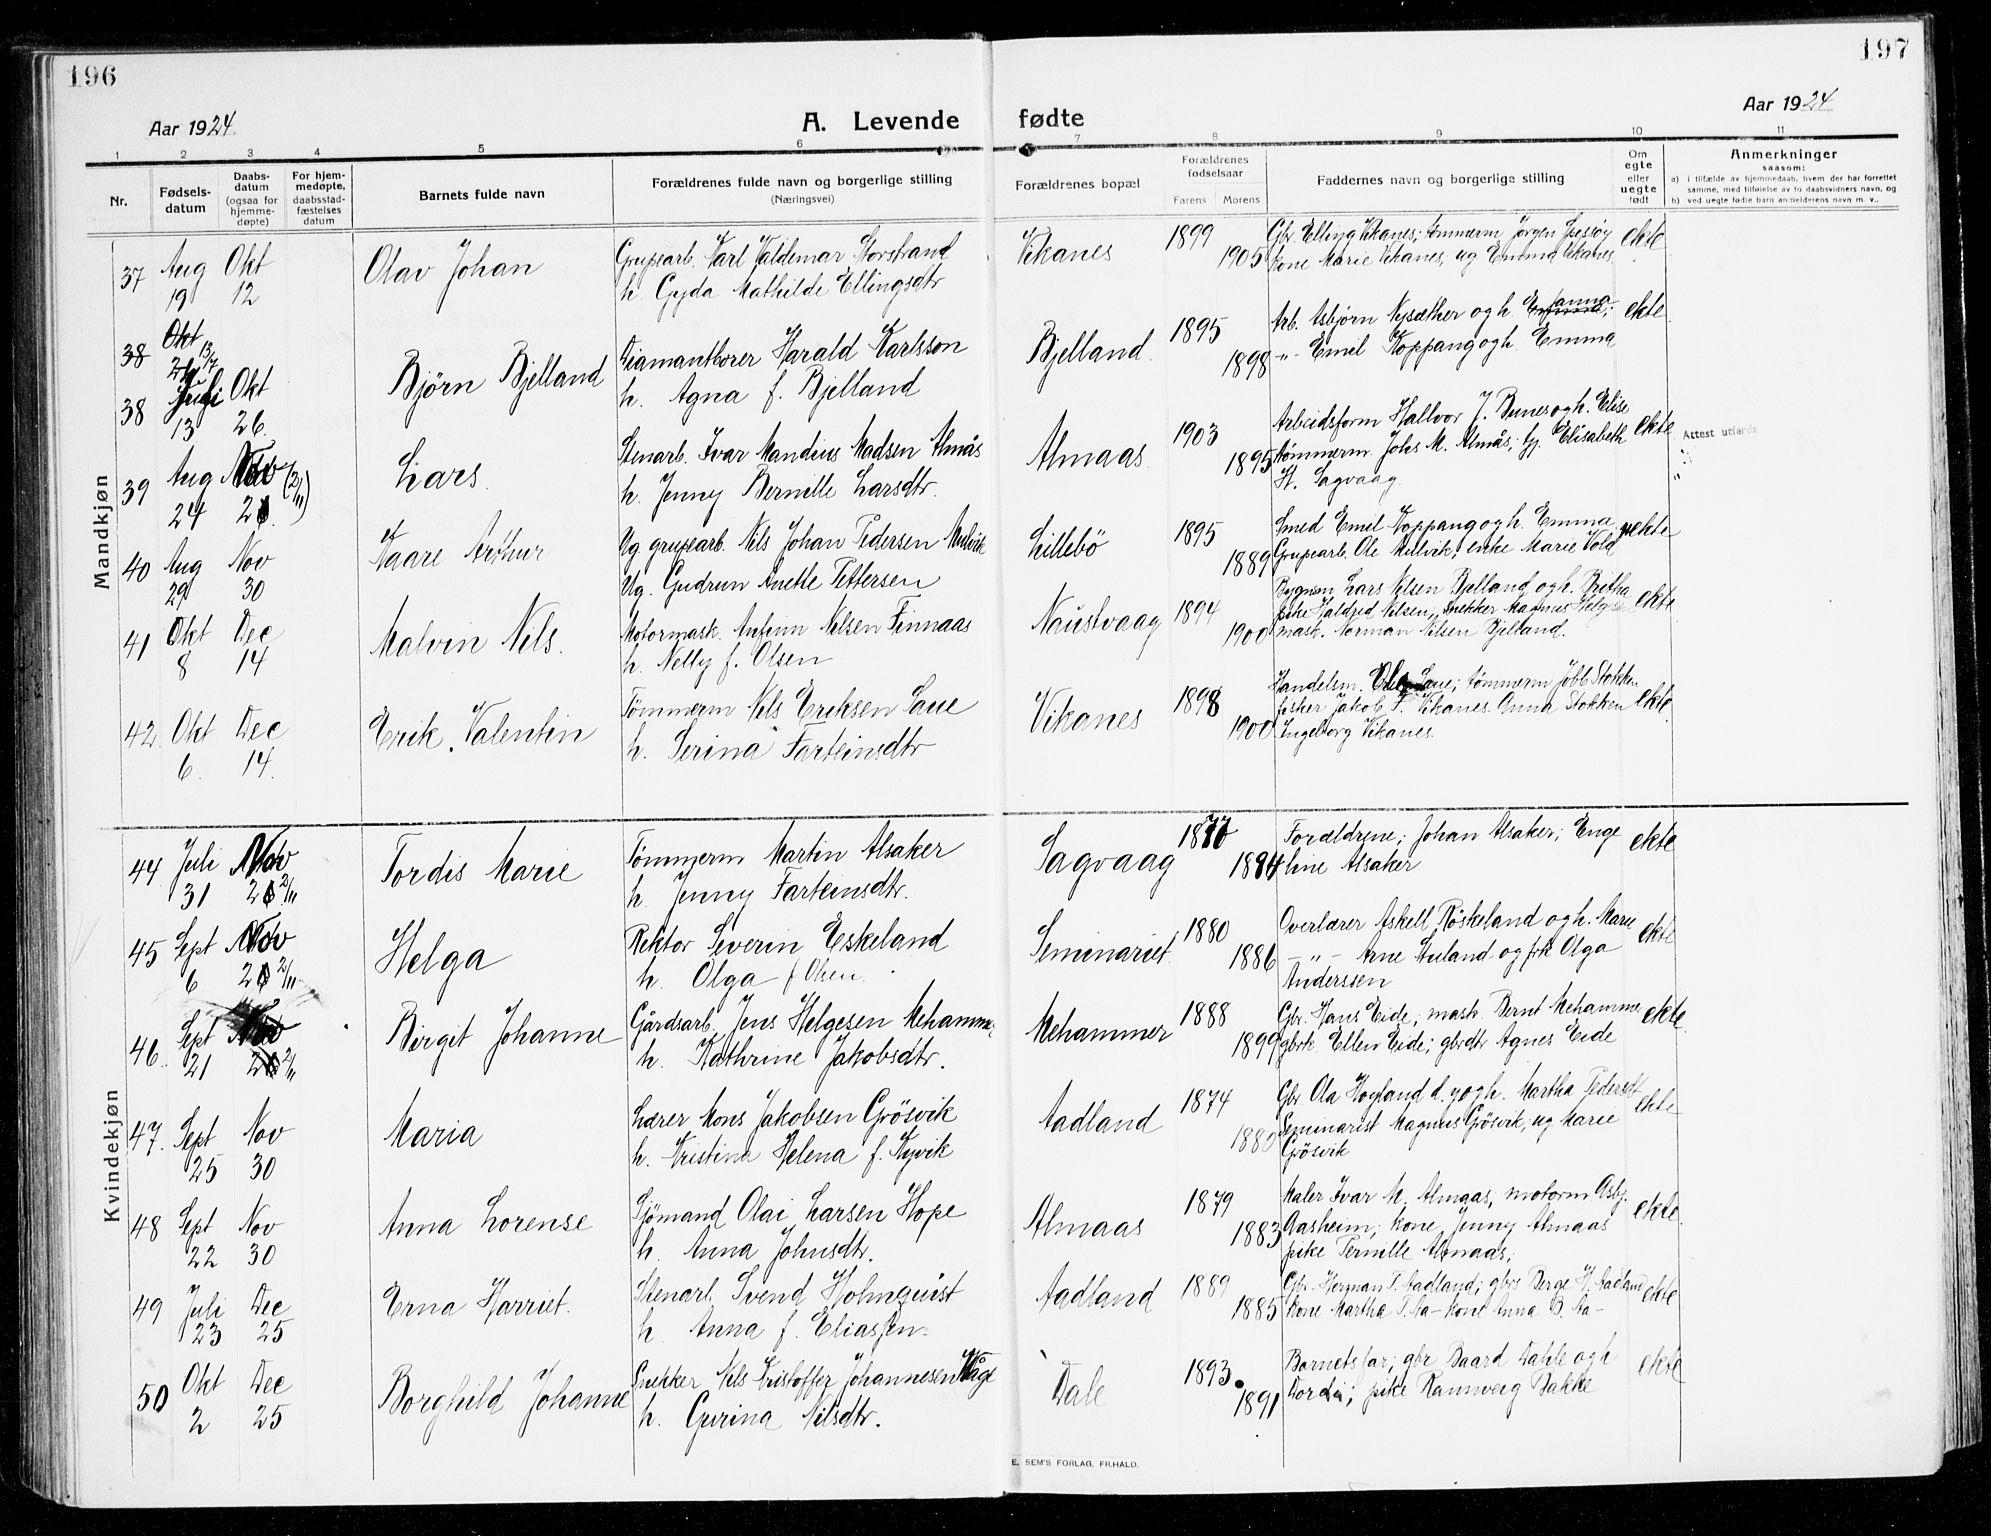 196
197
Aar 1924.
A. Levende fødte
Aar 1924
1 2 3 4 5 6 7 8 9 10 11
Nr.
Fødsels-
datum
Daabs-
datum
(ogsaa for
hjemme-
døpte)
For hjem-
medøpte,
daabsstad-
fæstelses
datum
Barnets fulde navn
Forældrenes fulde navn og borgerlige stilling
(Næringsvei)
Forældrenes bopæl
Forældrenes
fødselsaar
Farens Morens
Faddernes navn og borgerlige stilling
Om
egte
eller
uegte
født
Anmerkninger
saasom:
a) i tilfælde av hjemmedaab, hvem der har forrettet
samme, med tilføielse av to daabsvidners navn, og
b) ved uegte fødte barn anmelderens navn m. v..
Mandkjøn
37 Aug 19 Okt 12 Olav Johan
Grupearb. Karl Valdemar Storstrand
h. Gyda Mathilde Ellingsdtr
Vikanes 1899 1905
Gbr. Elling Vikanes; tømmerm Jørgen
kone Marie Vikanes, ug Emma Vikanes
ekte
38 Okt
38 Juli 13 Okt 26. Bjørn Bjelland
Diamantborer Harald Karlsson
h. Agna f. Bjelland
Bjelland. 1895 1898
Arb. Asbjørn Nysæther og h. anna;
-"- Emil Koppang og h. Emma
ekte
39 Aug 24 Nov (2/11) Lars.
Stenarb. Ivar Mandius Madsen Almås
h. Jenny Bernille Larsdtr.
Almaas. 1903 1895
Arbeidsform Hallvor J. Bunes og h. Elise
tømmerm. Johs M. Almås; Elisabeth
H. Sagvaag.
ekte
Attest utfærds
40 Aug 29 Nov 30 Kaare Arthur
Ug grupearb. Nils Johan Pedersen Mulvik
Ug. Gudrun Anette Pettersen
Lillebö 1895 1889
Smed Emil Koppang og h. Emma
Grupearb. Ole Mulvik; enke Marie Vold
uekte
41 Okt 8 Dec 14 Malvin Nils.
Motormask. Anfinn Nilsen Finnaas
h. Nelly f. Olsen
Naustvaag 1894 1900
Lars Nilsen Bjelland og h. Britha
pike Haldrid Nilsen, snekker Magnus
mask. Norman Nilsen Bjelland.
ekte
42. Okt 6. Dec 14. Erik Valentin
Tømmerm Nils Eriksen Saue
h. Serina Farteinsdtr
Vikanes 1898 1900
Handelsm. Saue; tømmerm Jobb Stokken
fisker Jakob F. Vikanes. Anna Stokken
Ingeborg Vikanes.
ekte.
Kvindekjøn
44. Juli 31 Nov 2/11 Tordis Marie
Tømmerm Martin Alsaker
h. Jenny Farteinsdtr.
Sagvaag 1877 1884
Forældrene; Johan Alsaker; Enge
line Alsaker
ekte
45 Sept 6 Nov 2/11 Helga
Rektor Severin Eskeland
h. Olga f Olsen.
Seminariet 1880 1886
Overlærer Askell Røskeland og h. Marie
-"- Arne Stuland og frk Olga
Anderssen
ekte
46. Sept 21 Nov 2/11 Birgit Johanne
Gårdsarb. Jens Helgesen Mehammer
h. Kathrine Jakobsdtr.
Mehammer 1888 1899
Gbr. Hans Eide; mask. Bernt Mehammer
gbrk. Ellen Eide; gbrdtr Agnes Eide
ekte.
47. Sept 25 Nov 30 Maria
Lærer Mons Jakobsen Grösvik
h. Kristina Helena f. Kyvik
Aadland 1874 1880
Gbr Ola Hoyland d. y og h. Martha Pedersdt
Seminarist Magnus Grösvik, ug Marie
Grösvik
ekte
48 Sept 22 Nov 30 Anna Lorense
Sjömand Olai Larsen Hope
h. Anna Johnsdtr.
Almaas 1879 1883
Maler Ivar M. Almaas, motorm Asbj.
Aasheim; kone Jenny Almaas
pike Pernille Almaas.
ekte.
49 Juli 23 Dec 25 Erna Harriet.
Stenarb. Svend Holmquist
h. Anna f. Eliassen.
Aadland 1889 1885
Gbr. Herman T. Aadland; gbrs Berge H. Aadland
kone Martha T. Aa- kone Anna B. Aa-
ekte
50 Okt 2 Dec 25 Borghild Johanne
Snekker Nils Kristoffer Johannesen Våge
h. Gurina Nilsdtr.
Dale 1893. 1891
Barnets far; gbr Baard Dahle og h
Dordi; pike Rannveig Bakke
ekte
E. SEM'S FORLAG, FR.HALD.